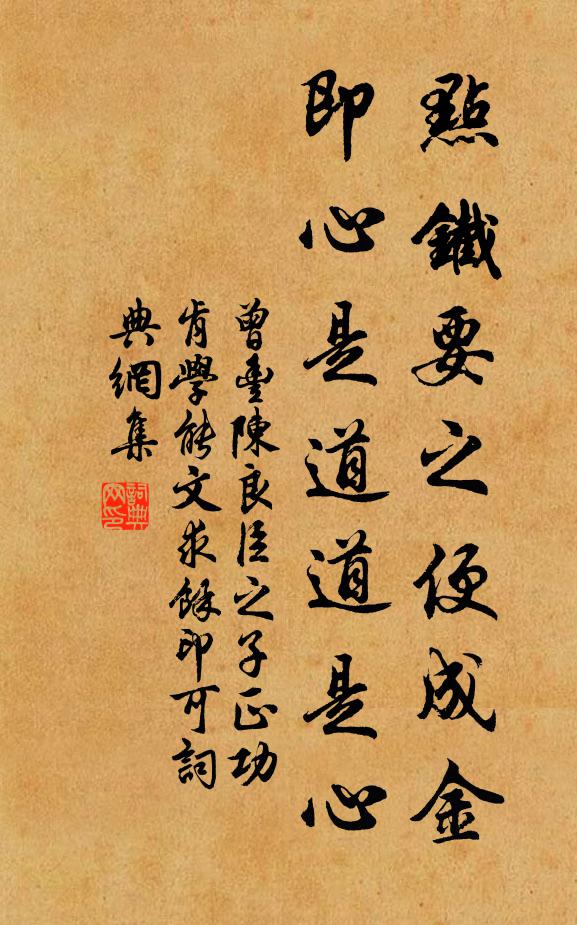 點鐵要之便成金
即心是道道是心
曾豐陳良臣之子正功
肯學能文求餘印可詞
典網集
詞典網印